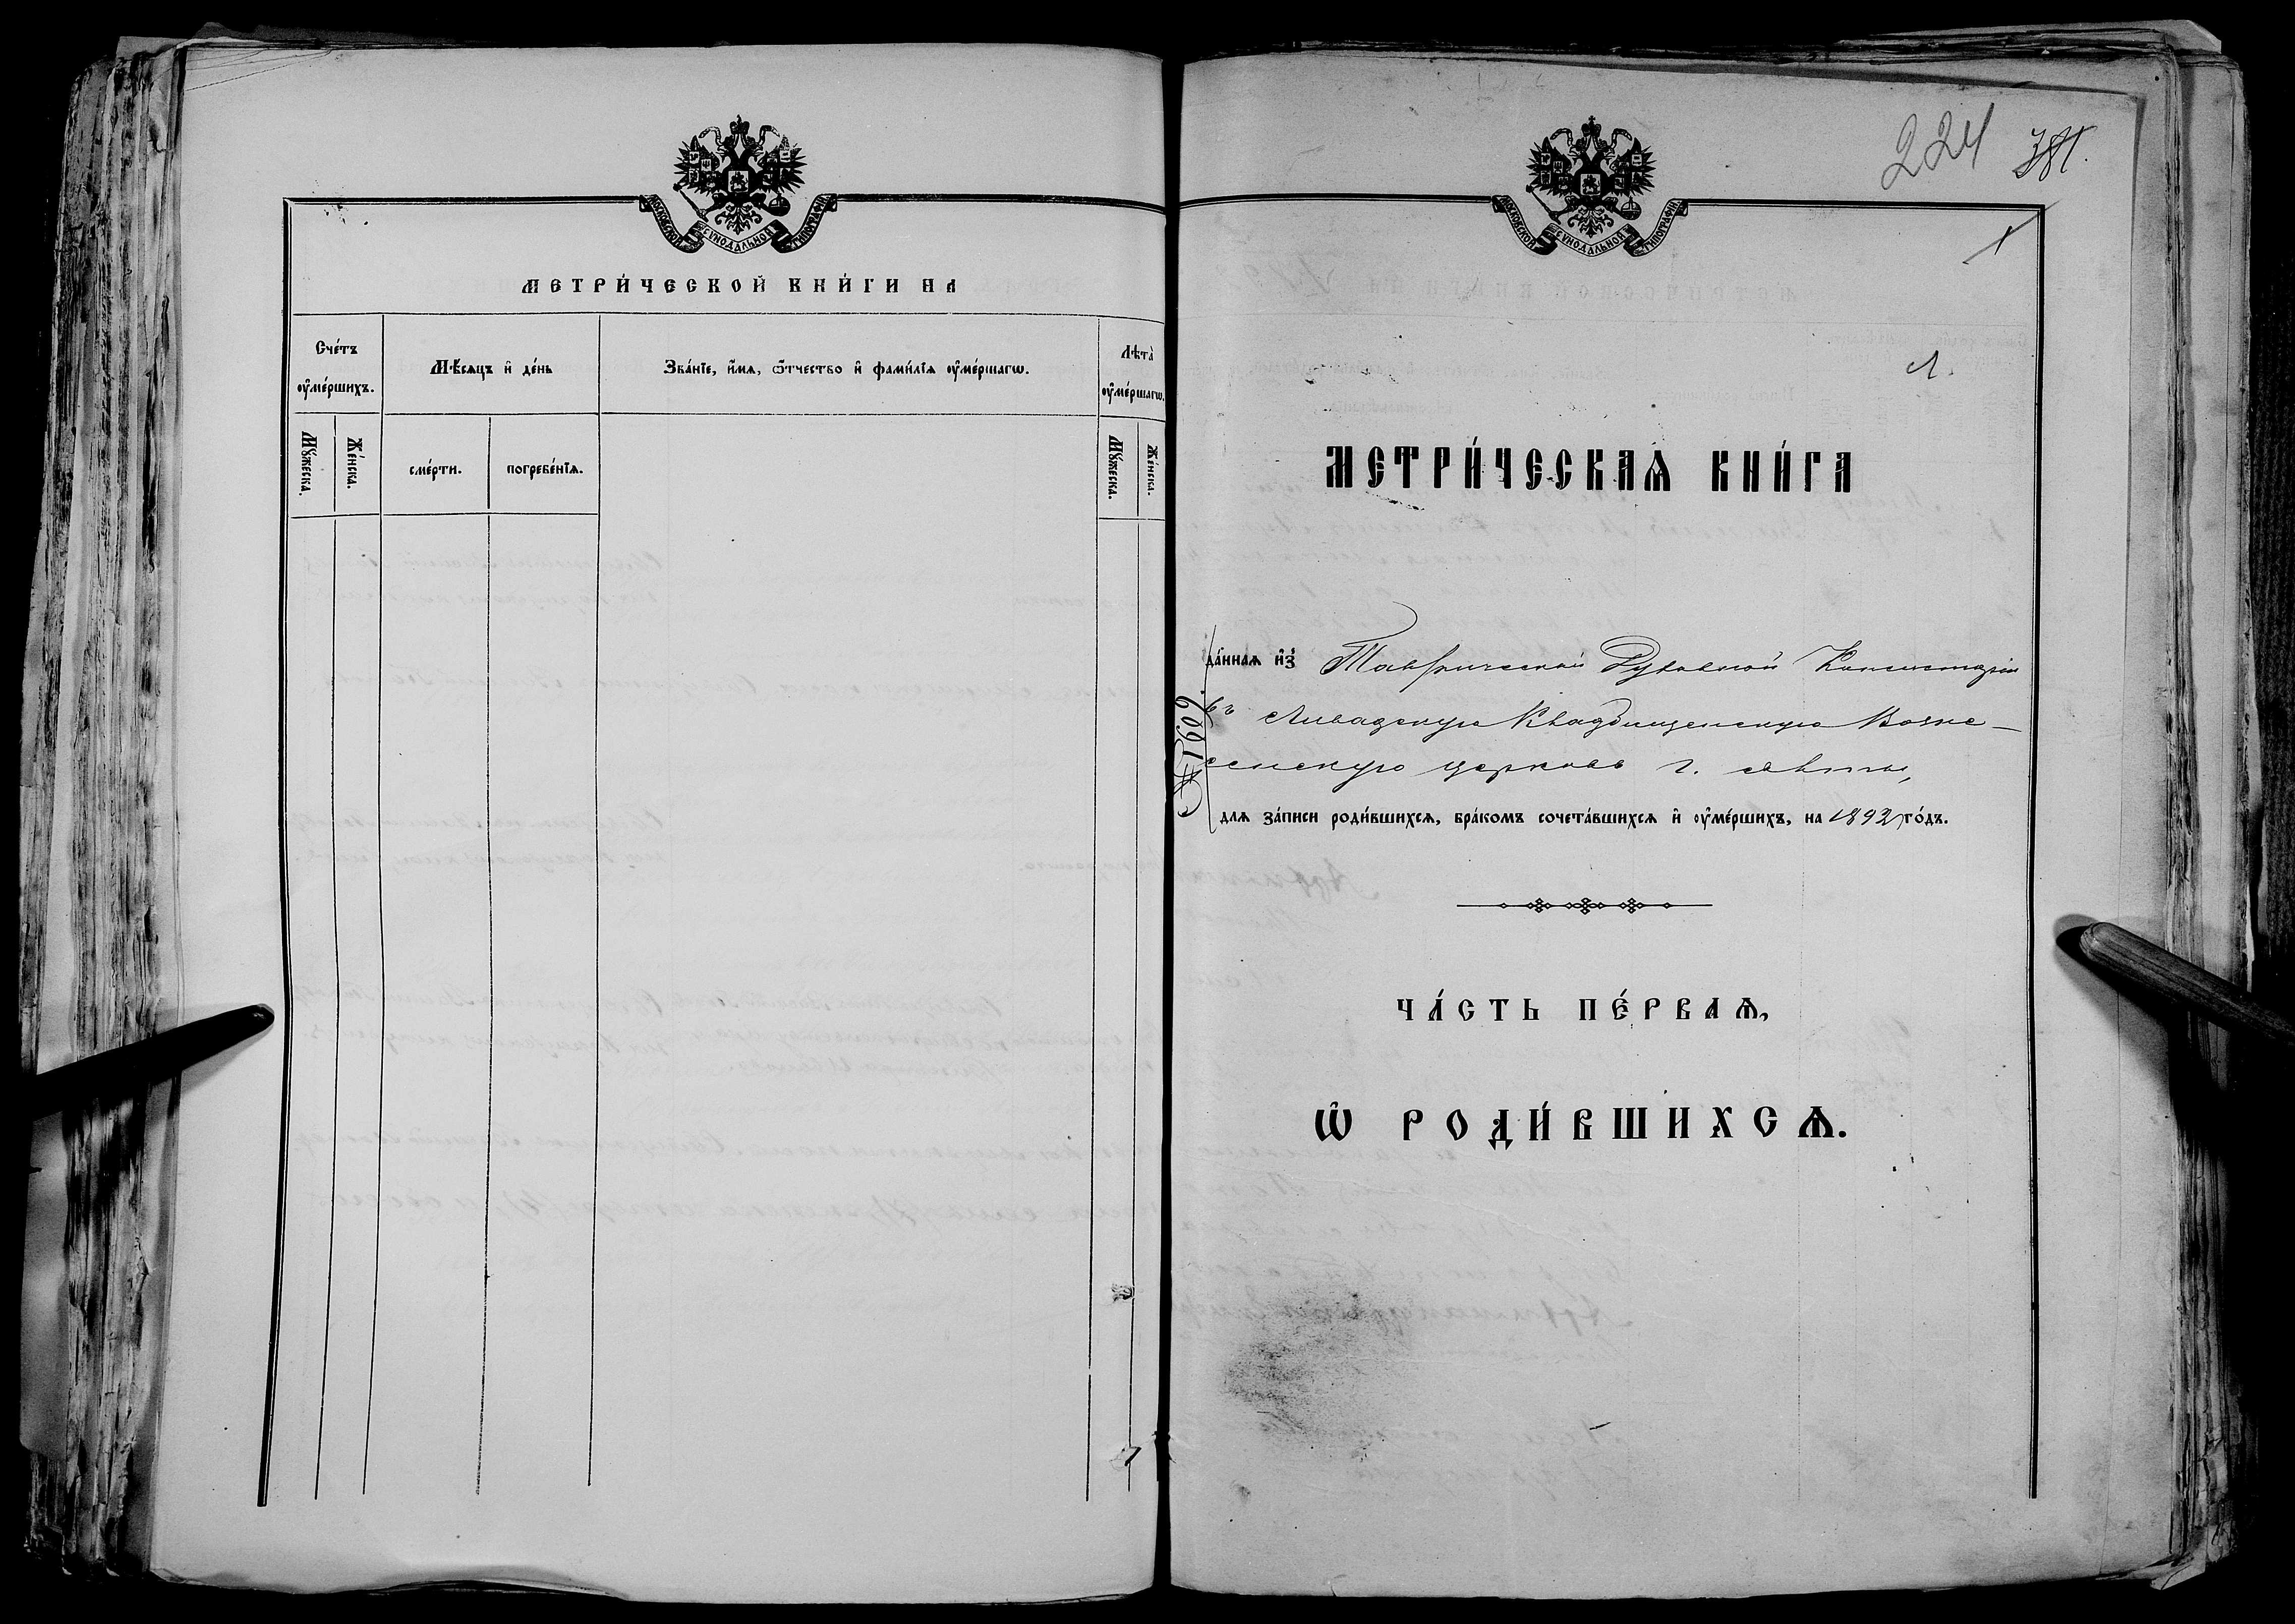 МОСКОВСКОЙ СѴНОДАЛЬНОЙ ТИПОГРАФІИ
МЕТРИ́ЧЕСКОЙ КНИ́ГИ НА
Сче́тъ оу҆ме́ршихъ.
Мѣ́сяцъ и҆ де́нь
Зва́нїе, и҆́мѧ, ѻ҆́тчество и҆ фами́лїѧ оу҆ме́ршагѡ.
Лѣта̀ оу҆ме́ршагѡ.
Мꙋ́жеска.
Же́нска.
сме́рти.
погребе́нїѧ.
Мꙋ́жеска.
Же́нска.
224 381.
МОСКОВСКОЙ СѴНОДАЛЬНОЙ ТИПОГРАФІИ
1
МЕТРИ́ЧЕСКАѦ КНИ́ГА
да́ннаѧ и҆з̾ Таврической Духовной Консисторіи
въ Кладбищенскую Возне-
сенскую церковь г. Ялты,
№ 1609.
для за́писи роди́вшихсѧ, бра́комъ сочета́вшихсѧ и҆ оу҆ме́ршихъ, на 1892 го́дъ.
ЧА́СТЬ ПЕ́РВАѦ,
Ѡ҆ РОДИ́ВШИХСѦ.